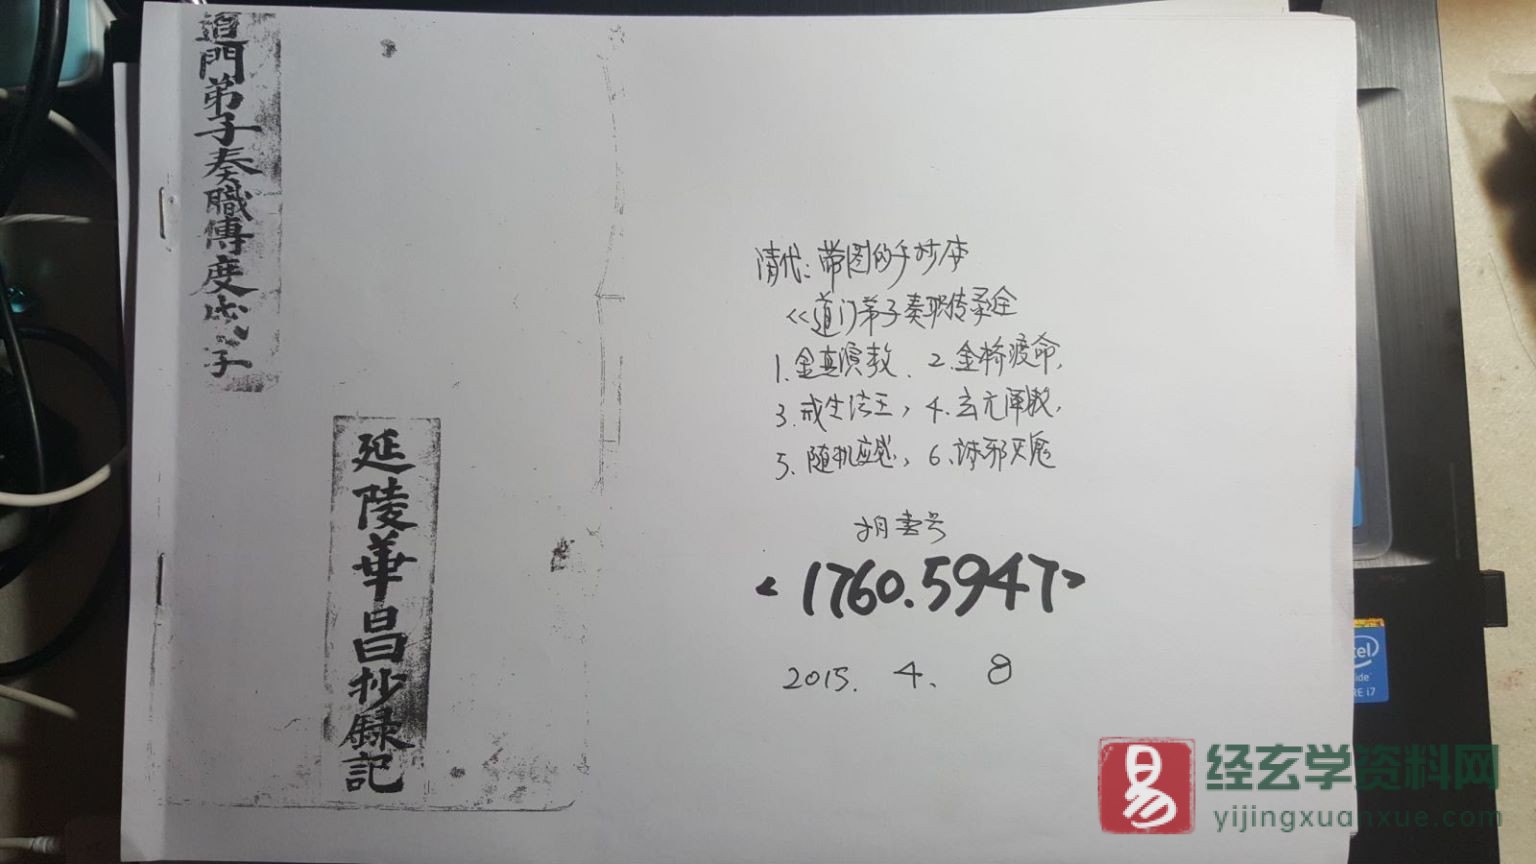 道門弟子奏職傳度
子
延陵華昌抄録記
清代：带图的手抄本
《道门弟子奏职传承全
1.金真演教、2.金桥度命，
3.戒生法王，4.玄元阐教，
5.随机应感，6.诛邪灭鬼
<1760.5947>
2015. 4. 8
intel
CORE i7
易
经玄学资料网
yijingxuanxue.com